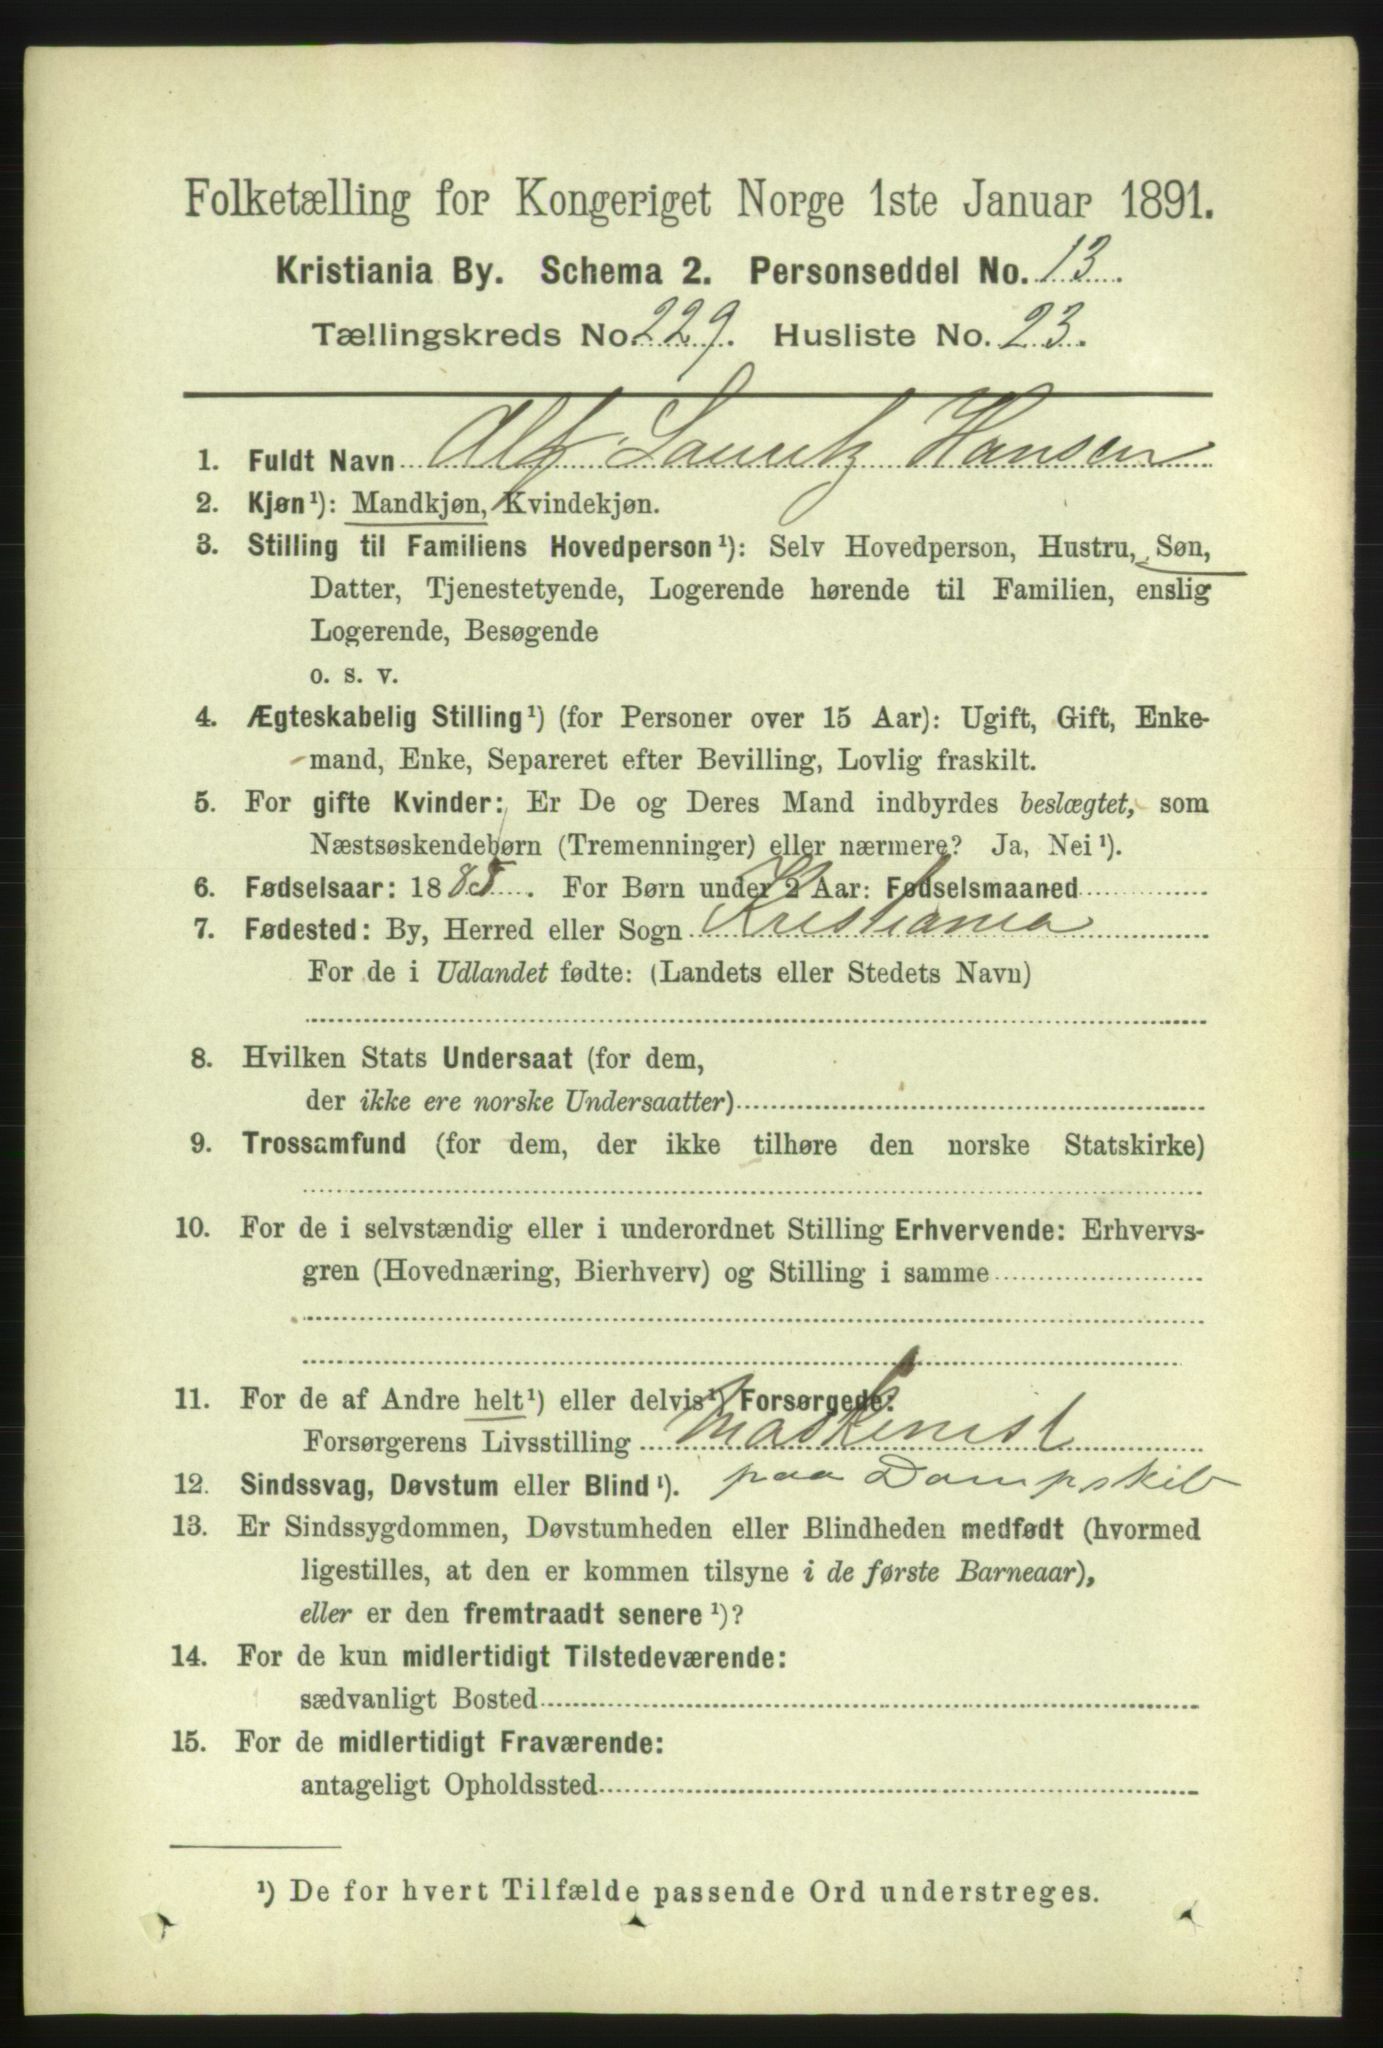 Folketælling for Kongeriget Norge 1ste Januar 1891.
Kristiania By. Schema 2. Personseddel No. 13.
Tællingskreds No. 229. Husliste No. 23.
1. Fuldt Navn Alf Lauritz Hansen
2. Kjøn¹): Mandkjøn, Kvindekjøn.
3. Stilling til Familiens Hovedperson¹): Selv Hovedperson, Hustru, Søn,
Datter, Tjenestetyende, Logerende hørende til Familien, enslig
Logerende, Besøgende
o. s. v.
4. Ægteskabelig Stilling¹) (for Personer over 15 Aar): Ugift, Gift, Enke-
mand, Enke, Separeret efter Bevilling, Lovlig fraskilt.
5. For gifte Kvinder: Er De og Deres Mand indbyrdes beslægtet, som
Næstsøskendebørn (Tremenninger) eller nærmere? Ja, Nei¹).
6. Fødselsaar: 1885. For Børn under 2 Aar: Fødselsmaaned
7. Fødested: By, Herred eller Sogn Kristiania
For de i Udlandet fødte: (Landets eller Stedets Navn)
8. Hvilken Stats Undersaat (for dem,
der ikke ere norske Undersaatter)
9. Trossamfund (for dem, der ikke tilhøre den norske Statskirke)
10. For de i selvstændig eller i underordnet Stilling Erhvervende: Erhvervs-
gren (Hovednæring, Bierhverv) og Stilling i samme
11. For de af Andre helt¹) eller delvis¹) Forsørgede:
Forsørgerens Livsstilling Maskenist
12. Sindssvag, Døvstum eller Blind¹). paa Dampskib
13. Er Sindssygdommen, Døvstumheden eller Blindheden medfødt (hvormed
ligestilles, at den er kommen tilsyne i de første Barneaar),
eller er den fremtraadt senere¹)?
14. For de kun midlertidigt Tilstedeværende:
sædvanligt Bosted
15. For de midlertidigt Fraværende:
antageligt Opholdssted
¹) De for hvert Tilfælde passende Ord understreges.